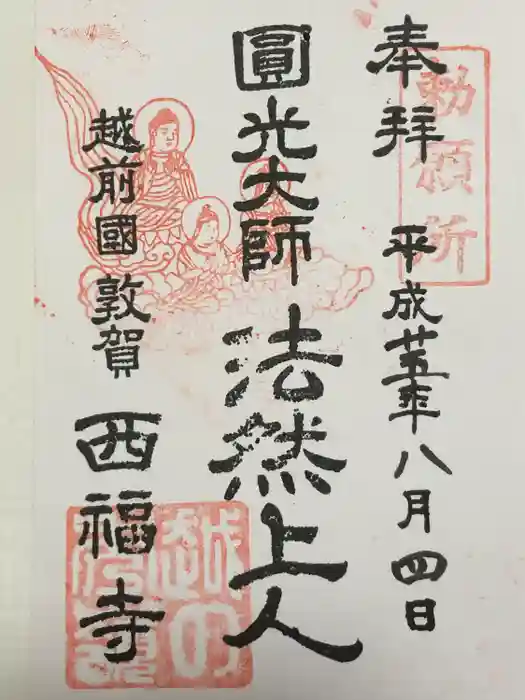 奉拜
勅願所
平成廿五年八月四日
圓光大師
法然上人
越前國敦賀
西福寺